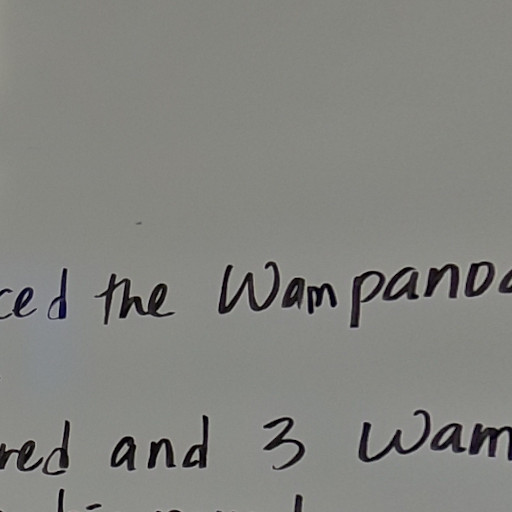 ced the Wampanoa
red and 3 Wam